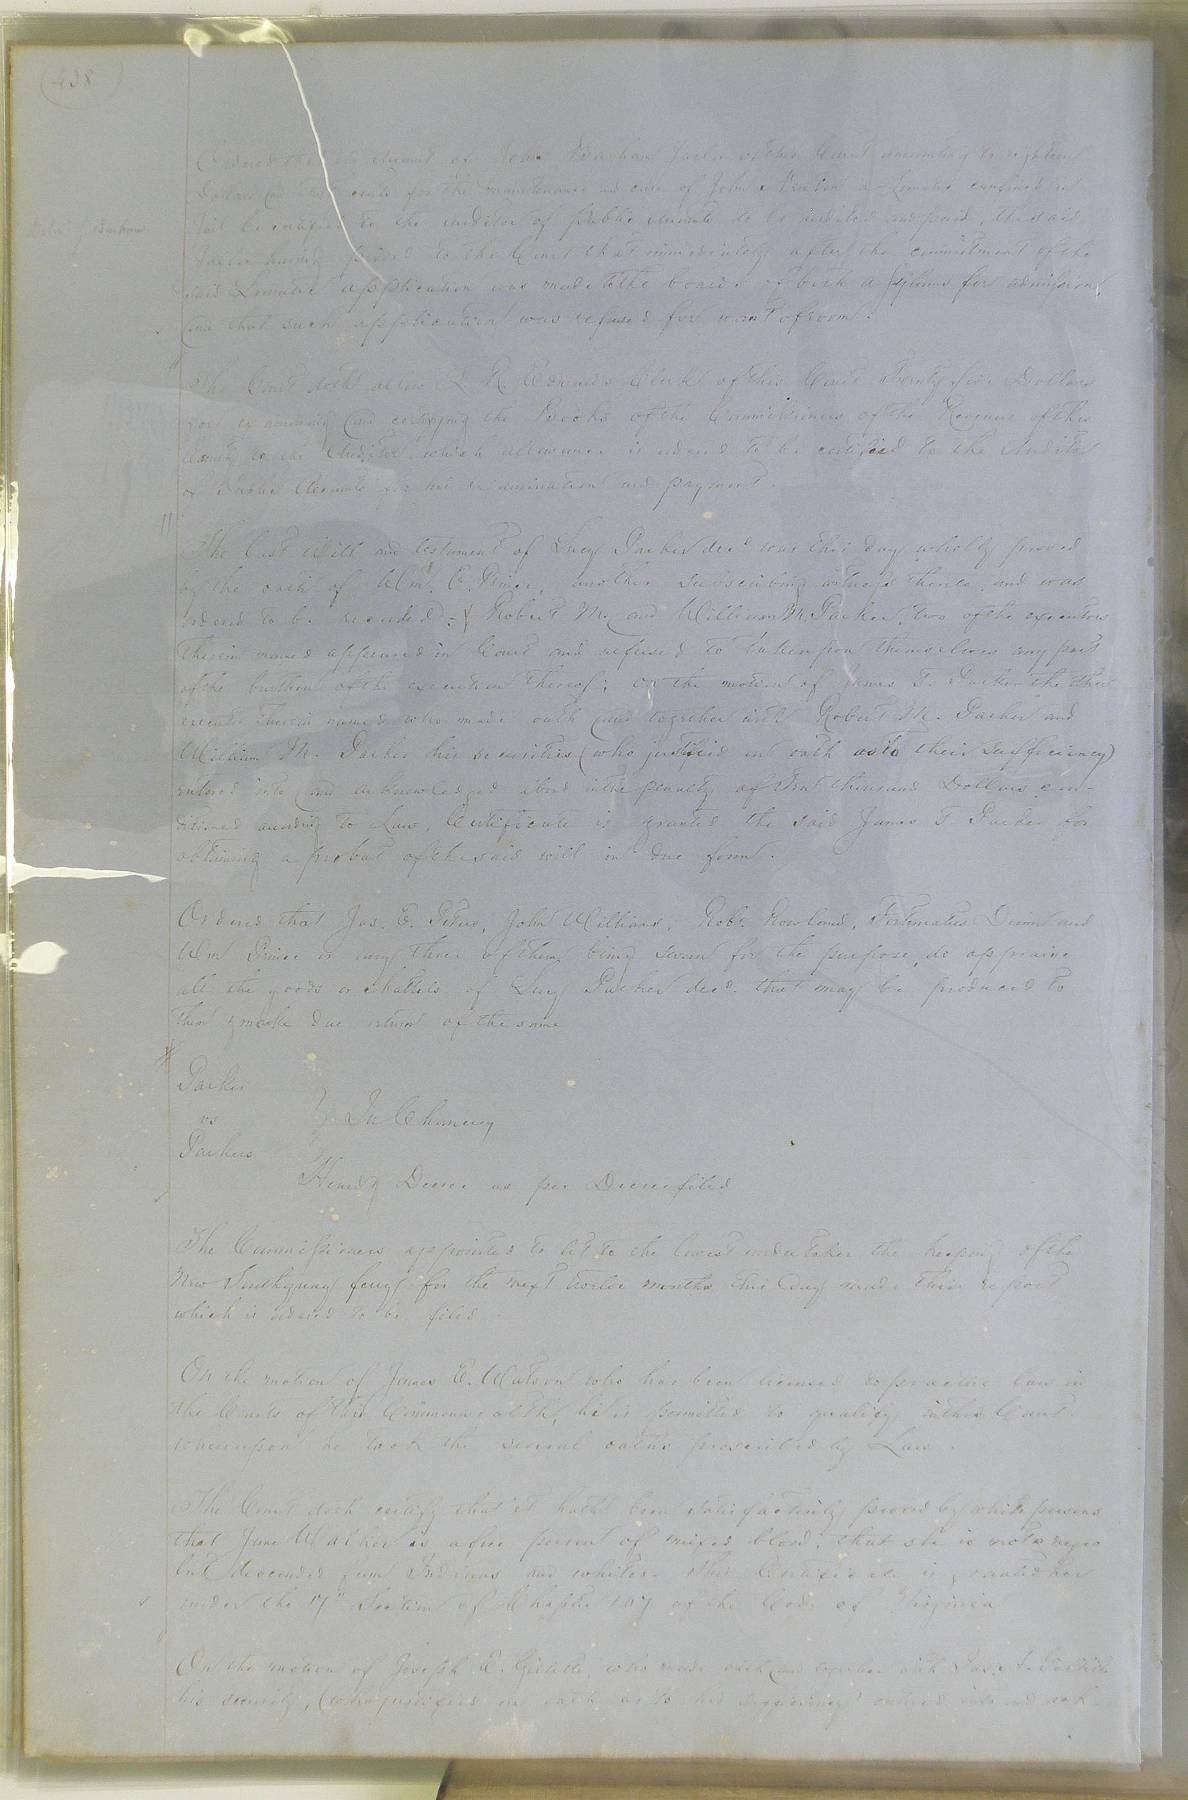 (438)
Ordered that the account of John Barham Jailor of this Court amounting to eighteen
Dollars and cents for the maintenance and care of John a Lunatic confined in
Jail be certified to the Auditor of public accounts to be audited and paid, the said
Jailor having proved to the Court that immediately after the commitment of the
said Lunatic application was made to the boards of both asylums for admission
and that such application was refused for want of room.
The Court doth allow L R. Edwards Clerk of this Court Twenty five Dollars
for examining and certifying the Books of the Commissioners of the Revenue of this
County to the Auditor which allowance is ordered to be certified to the Auditor
of Public Accounts for his examination and payment.
The last Will and testament of Lucy Parker decd was this day wholly proved
by the oath of Wm. E. Prince, another subscribing witness thereto, and was
ordered to be recorded. & Robert M. and William M. Parker, two of the executors
therein named appeared in Court and refused to take upon themselves any part
of the burthen of the execution thereof; on the motion of James T. Parker the other
executor therein named who made oath and together with Robert M. Parker and
William M. Parker his securities (who justified on oath as to their sufficiency)
entered into and acknowledged a bond in the penalty of thousand Dollars con-
ditioned according to Law, Certificate is granted the said James T Parker for
obtaining a probat of the said will in due form.
Ordered that Jas. E. Peters, John Williams, Robt. Rowland, Fortunatus and
Wm Prince or any three of them being sworn for the purpose, do appraise
all the goods or chattels of Lucy Parker decd. that may be produced to
them & make due return of the same
Parker
vs } In Chancery
Parkers
Decree as per Decree filed
The Commissioners appointed to let to the lowest undertaker the keeping of the
New Southquay ferry for the next twelve months this day made their report
which is ordered to be filed.
On the motion of James E. Watson who has been licensed to practice law in
the Courts of this Commonwealth, he is permitted to qualify in this Court
whereupon he took the several oaths prescribed by Law.
The Court doth certify that it hath been satisfactorily proved by white persons
that Jane Walker is a free person of mixed blood, that she is not a negro
but descended from Indians and whites. This Certificate is granted her
under the 17th Section of Chapter 107 of the Code of Virginia
On the motion of Joseph E. Gillette, who made oath and together with Jas.
his security, (who justified on oath as to his sufficiency) entered into and ack-